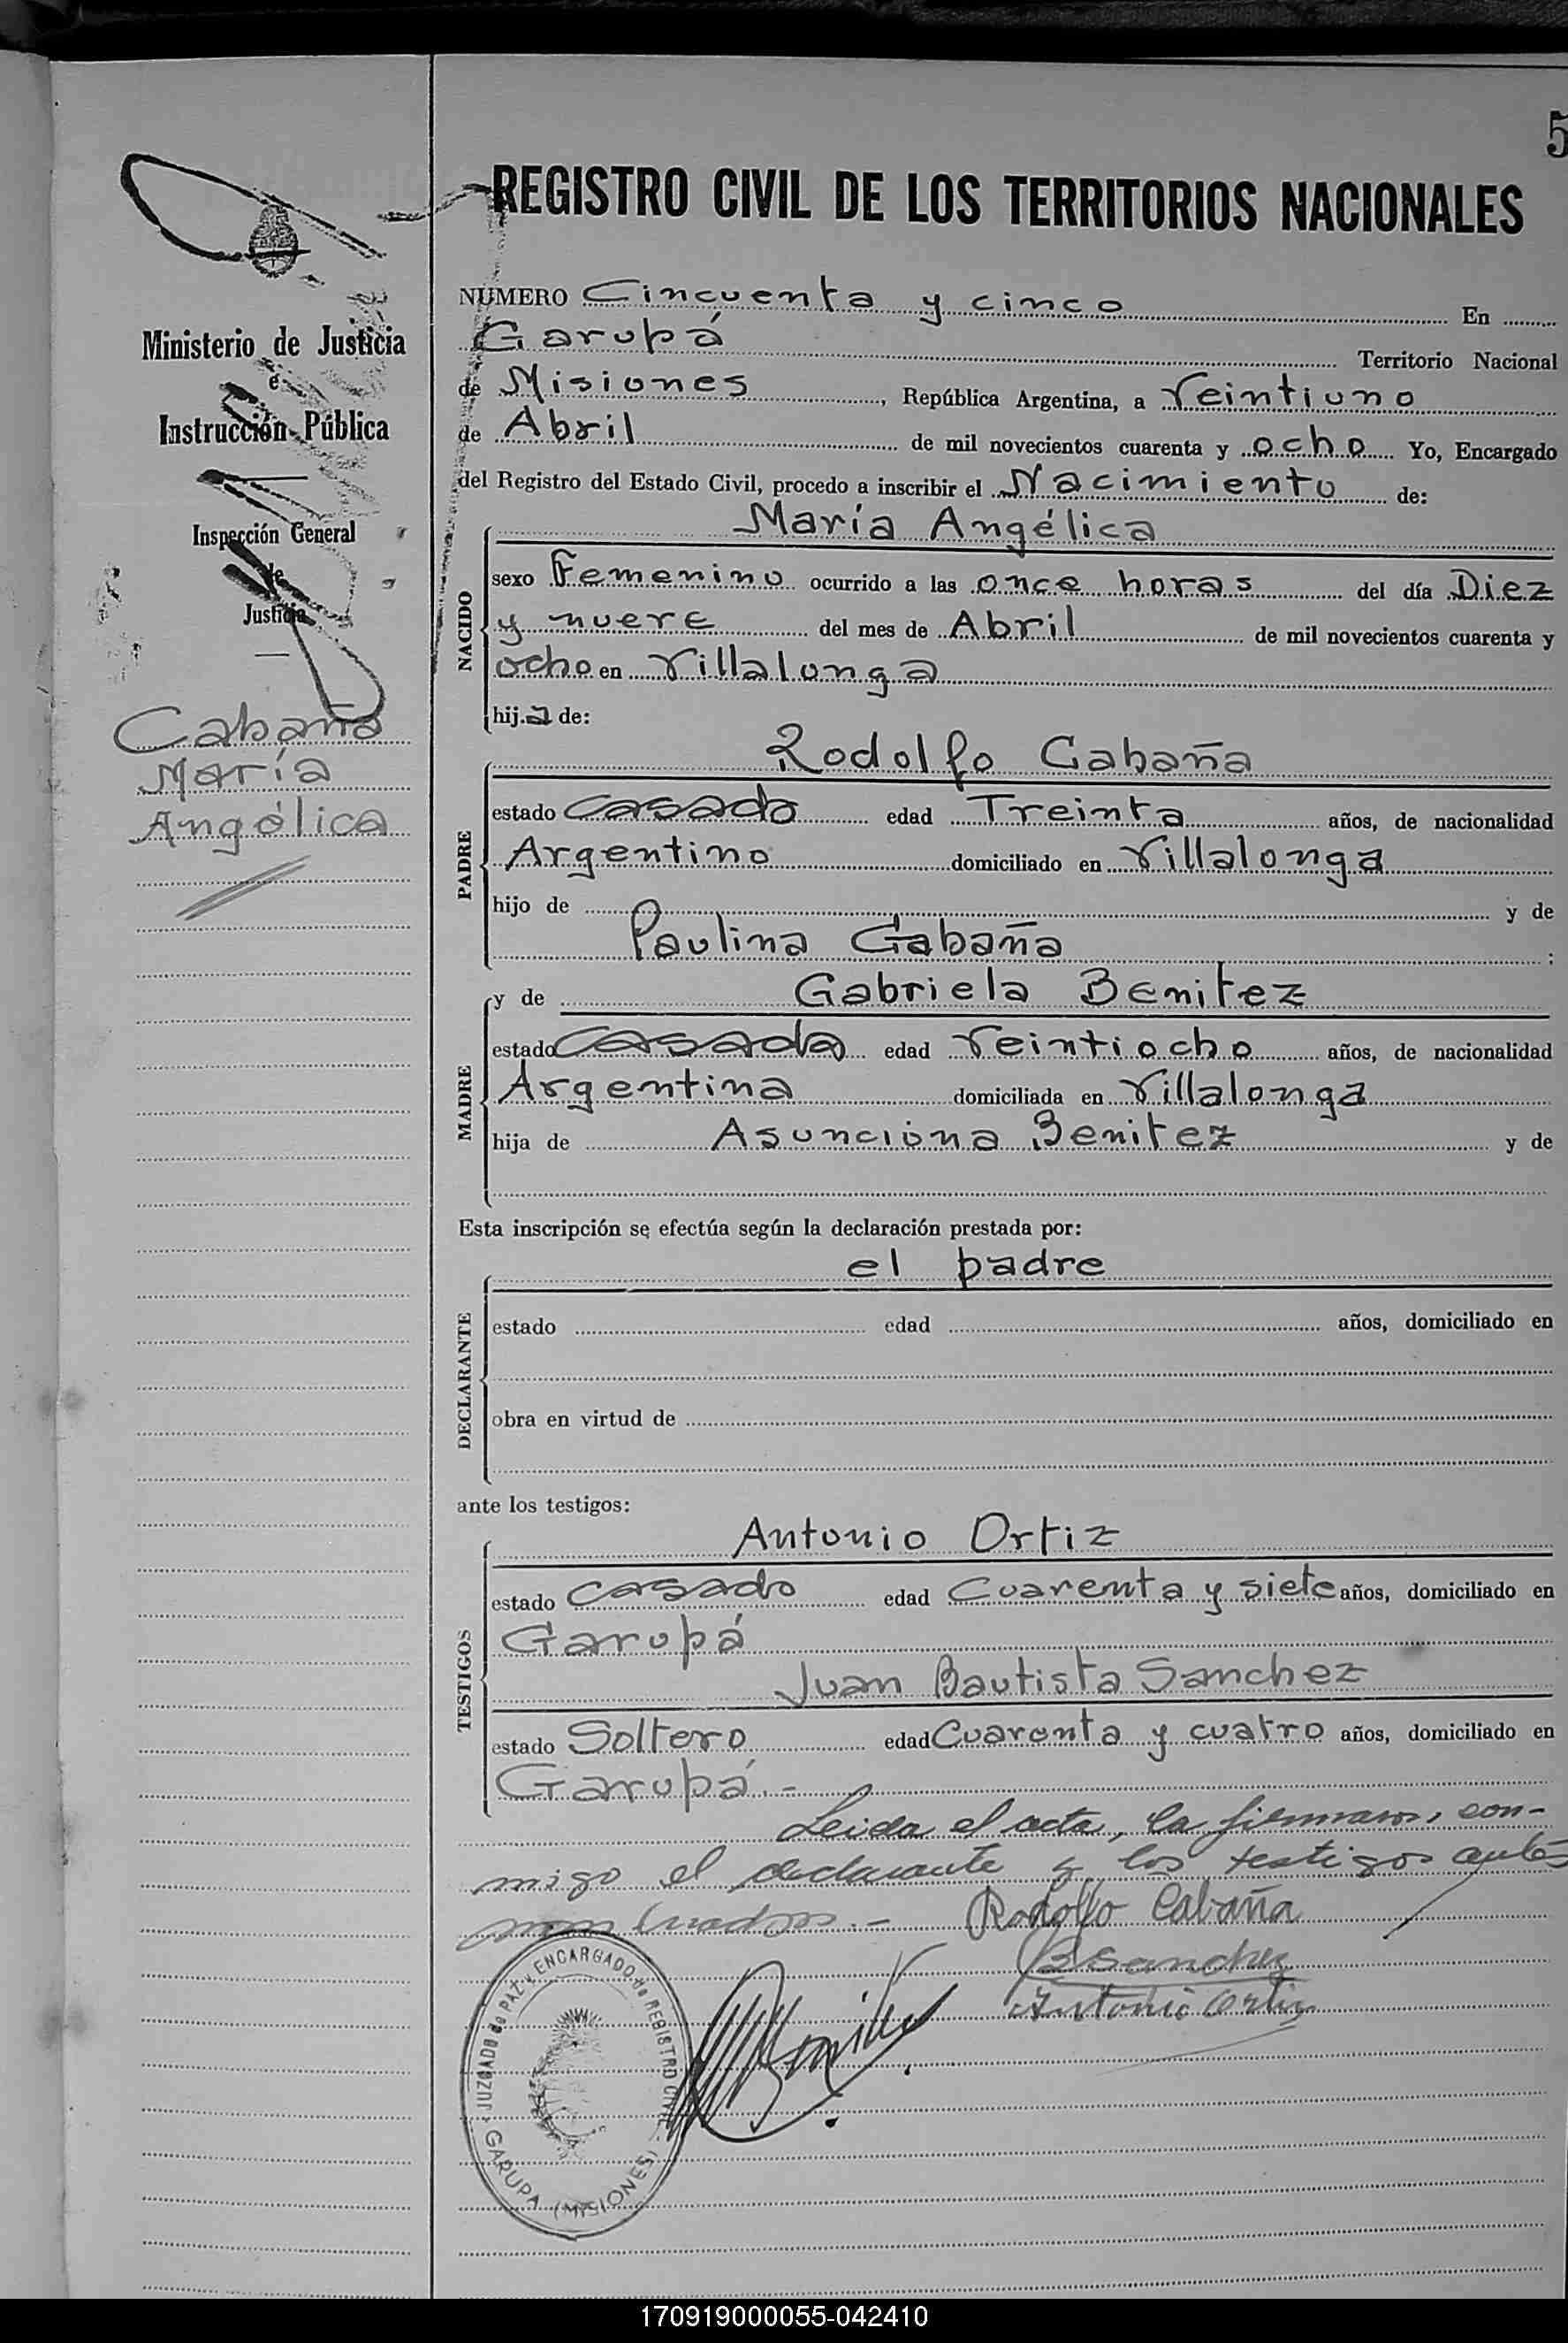 5
REGISTRO CIVIL DE LOS TERRITORIOS NACIONALES
Ministerio de Justicia
e
Instrucción Pública
Inspección General
de
Justicia
Cabaña
María
Angélica
NUMERO Cincuenta y cinco En
Garupá Territorio Nacional
de Misiones, República Argentina, a Veintiuno
de Abril de mil novecientos cuarenta y ocho Yo, Encargado
del Registro del Estado Civil, procedo a inscribir el Nacimiento de:
NACIDO
María Angélica
sexo Femenino ocurrido a las once horas del día Diez
y nueve del mes de Abril de mil novecientos cuarenta y
ocho en Villalonga
hij.a de:
PADRE
Rodolfo Cabaña
estado casado edad Treinta años, de nacionalidad
Argentino domiciliado en Villalonga
hijo de y de
Paulina Cabaña ;
MADRE
y de Gabriela Benitez
estado casada edad Veintiocho años, de nacionalidad
Argentina domiciliada en Villalonga
hija de Asunciona Benitez y de
Esta inscripción se efectúa según la declaración prestada por:
DECLARANTE
el padre
estado edad años, domiciliado en
obra en virtud de
ante los testigos:
TESTIGOS
Antonio Ortiz
estado casado edad Cuarenta y siete años, domiciliado en
Garupá
Juan Bautista Sanchez
estado Soltero edad Cuarenta y cuatro años, domiciliado en
Garupá.-
Leida el acta, la firmaron, con-
migo el declarante y los testigos antes
nombrados.- Rodolfo Cabaña
B Sanchez
Antonio Ortiz
JUZGADO de PAZ y ENCARGADO de REGISTRO CIVIL
GARUPA (MISIONES)
170919000055-042410